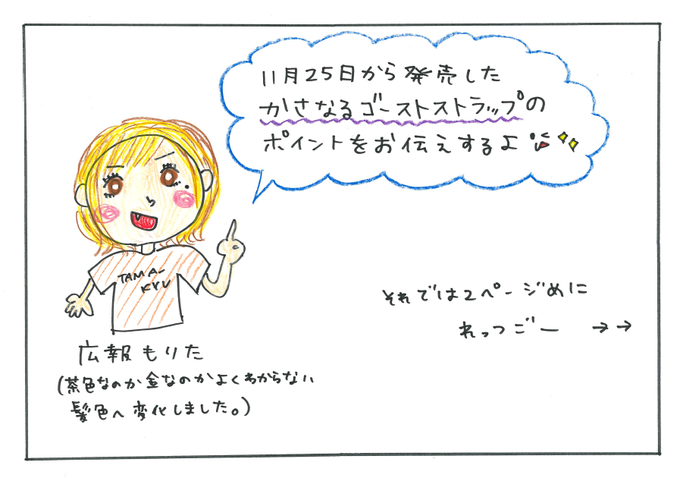 11月25日から発売した
かさなるゴーストストラップの
ポイントをお伝えするよ
TAMA-
KYU
広報もりた
(茶色なのか金なのかよくわからない
髪色へ変化しました。)
それでは2ページめに
れっつごー →→